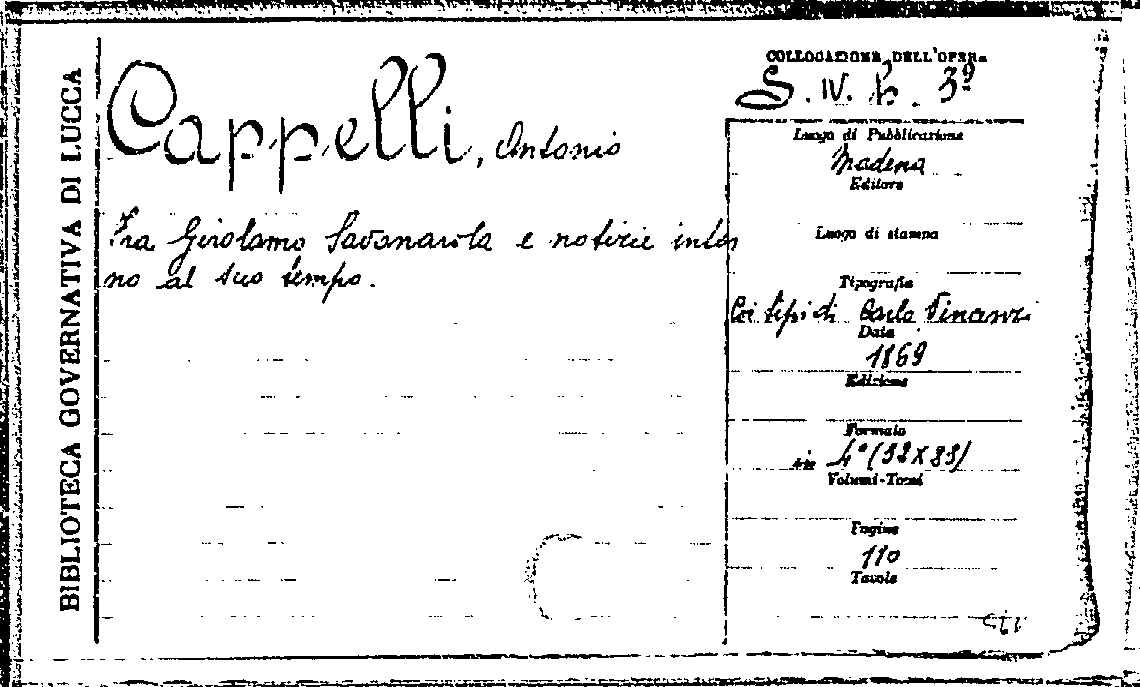 BIBLIOTECA GOVERNATIVA DI LUCCA
Cappelli, Antonio
Fra Girolamo Savonarola e notizie intor
no al suo tempo.
COLLOCAZIONE DELL'OPERA
S. IV. b. 39
Luogo di Pubblicazione
Modena
Editore
Luogo di stampa
Tipografia
Coi tipi di Carlo Vincenzi
Data
1869
Edizione
Formato
in 4° (32X23)
Volumi-Tomi
Pagine
110
Tavole